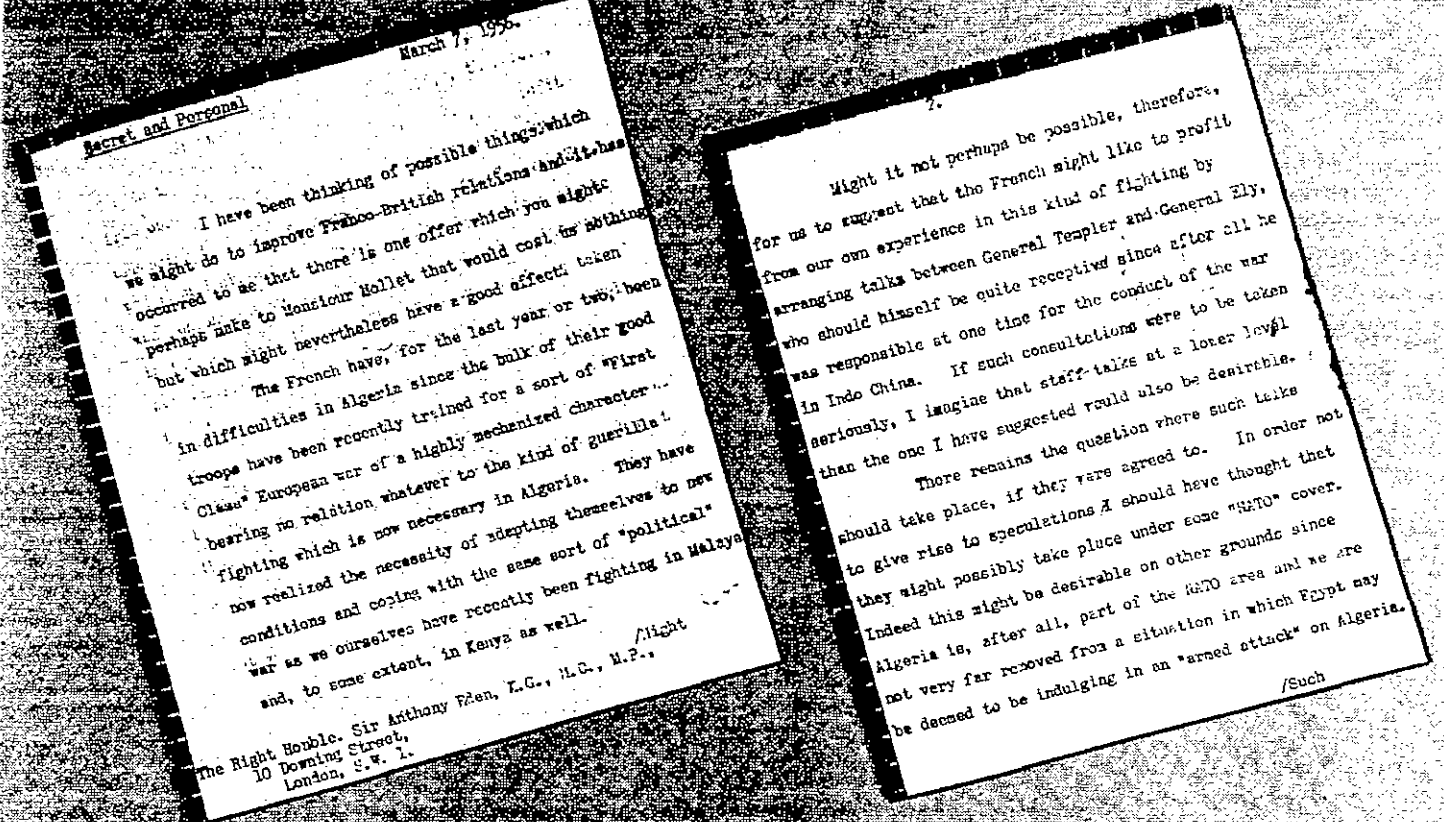 March 7, 1956.
Secret and Personal
I have been thinking of possible things which
we might do to improve Franco-British relations and it has
occurred to me that there is one offer which you might
perhaps make to Monsieur Mollet that would cost us nothing
but which might nevertheless have a good effect.
The French have, for the last year or two, been
in difficulties in Algeria since the bulk of their good
troops have been recently trained for a sort of "First
Class" European war of a highly mechanized character
bearing no relation whatever to the kind of guerilla
fighting which is now necessary in Algeria. They have
now realized the necessity of adapting themselves to new
conditions and coping with the same sort of "political"
war as we ourselves have recently been fighting in Malaya
and, to some extent, in Kenya as well.
/Might
The Right Honble. Sir Anthony Eden, K.G., M.C., M.P.,
10 Downing Street,
London, S.W. 1.
2.
Might it not perhaps be possible, therefore,
for us to suggest that the French might like to profit
from our own experience in this kind of fighting by
arranging talks between General Templer and General Ely,
who should himself be quite receptive since after all he
was responsible at one time for the conduct of the war
in Indo China. If such consultations were to be taken
seriously, I imagine that staff talks at a lower level
than the one I have suggested would also be desirable.
There remains the question where such talks
should take place, if they were agreed to. In order not
to give rise to speculations I should have thought that
they might possibly take place under some "NATO" cover.
Indeed this might be desirable on other grounds since
Algeria is, after all, part of the NATO area and we are
not very far removed from a situation in which Egypt may
be deemed to be indulging in an "armed attack" on Algeria.
/Such